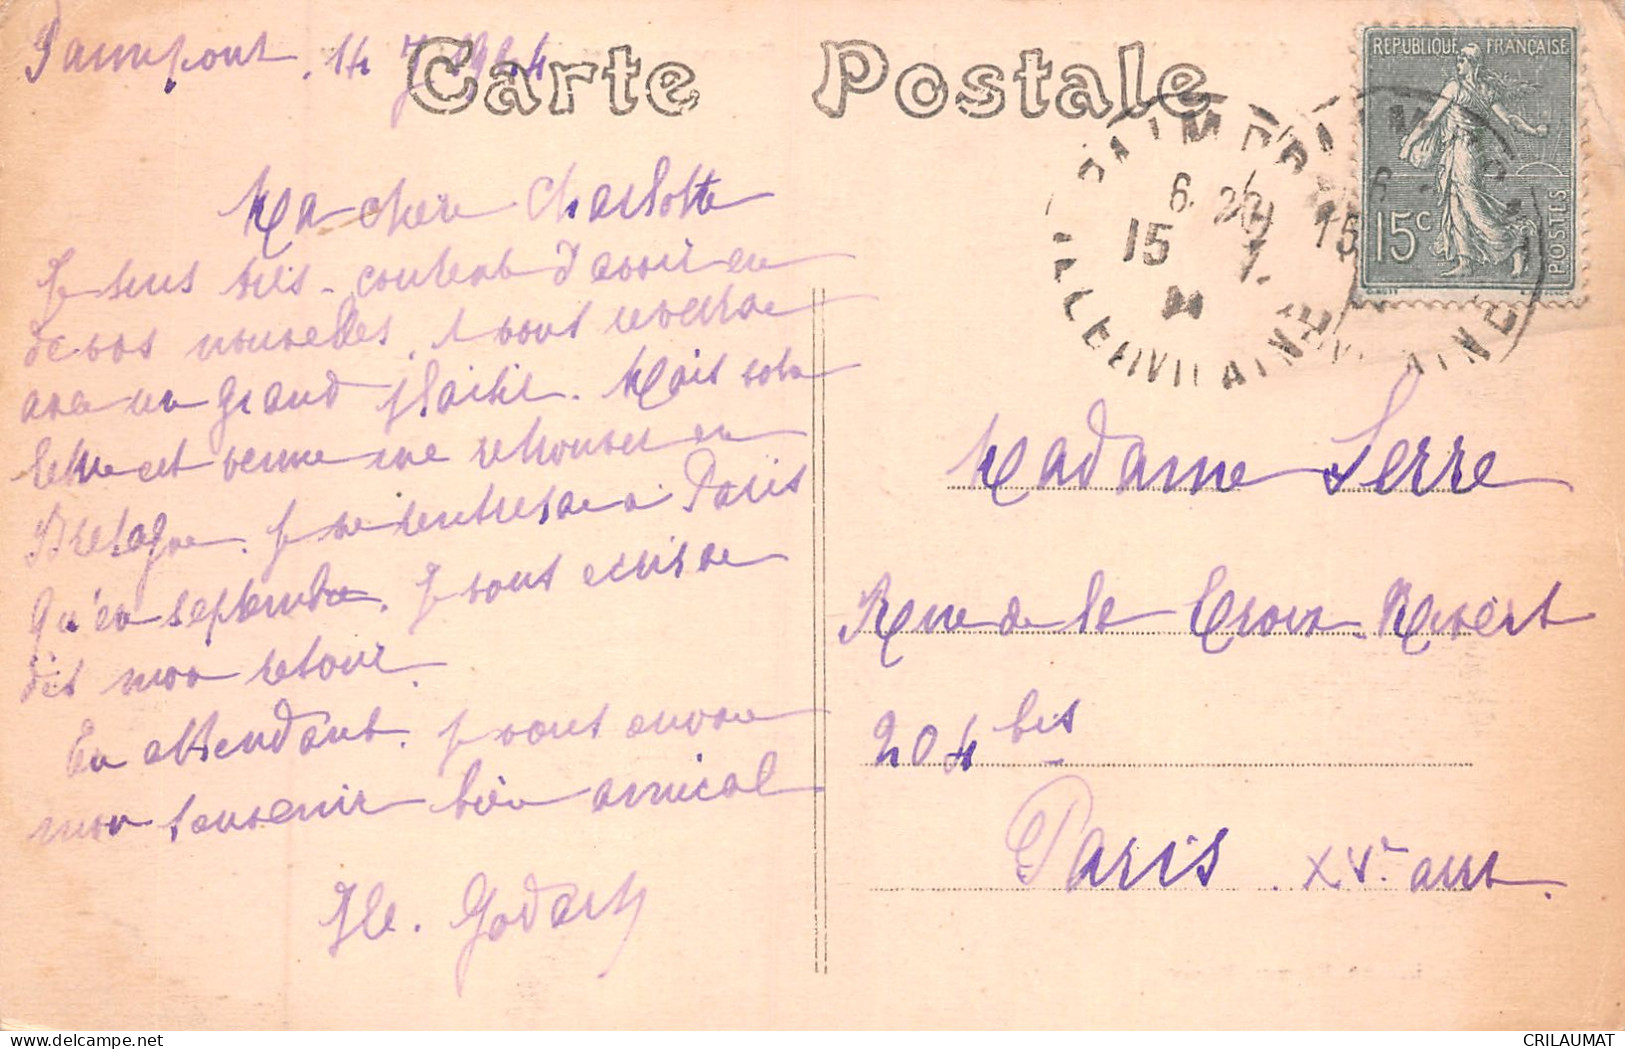 Paimpont. 14 7 1924
Carte Postale
REPUBLIQUE FRANÇAISE
15c
POSTES
PAIMPONT
6. 22
15 7. 24
ILLE-ET-VILAINE
Ma chère Charlotte
Je suis très contente d'avoir eu
de vos nouvelles, je vous reverrai
avec un grand plaisir. Mais votre
lettre est venue me retrouver en
Bretagne. Je ne rentrerai à Paris
qu'en septembre. Je vous écrirai
dès mon retour.
En attendant. Je vous envoie
mon souvenir bien amical
Hle. Godart
Madame Serre
Rue de la Croix-Nivert
204 bis
Paris. XVe arrt.
CRILAUMAT